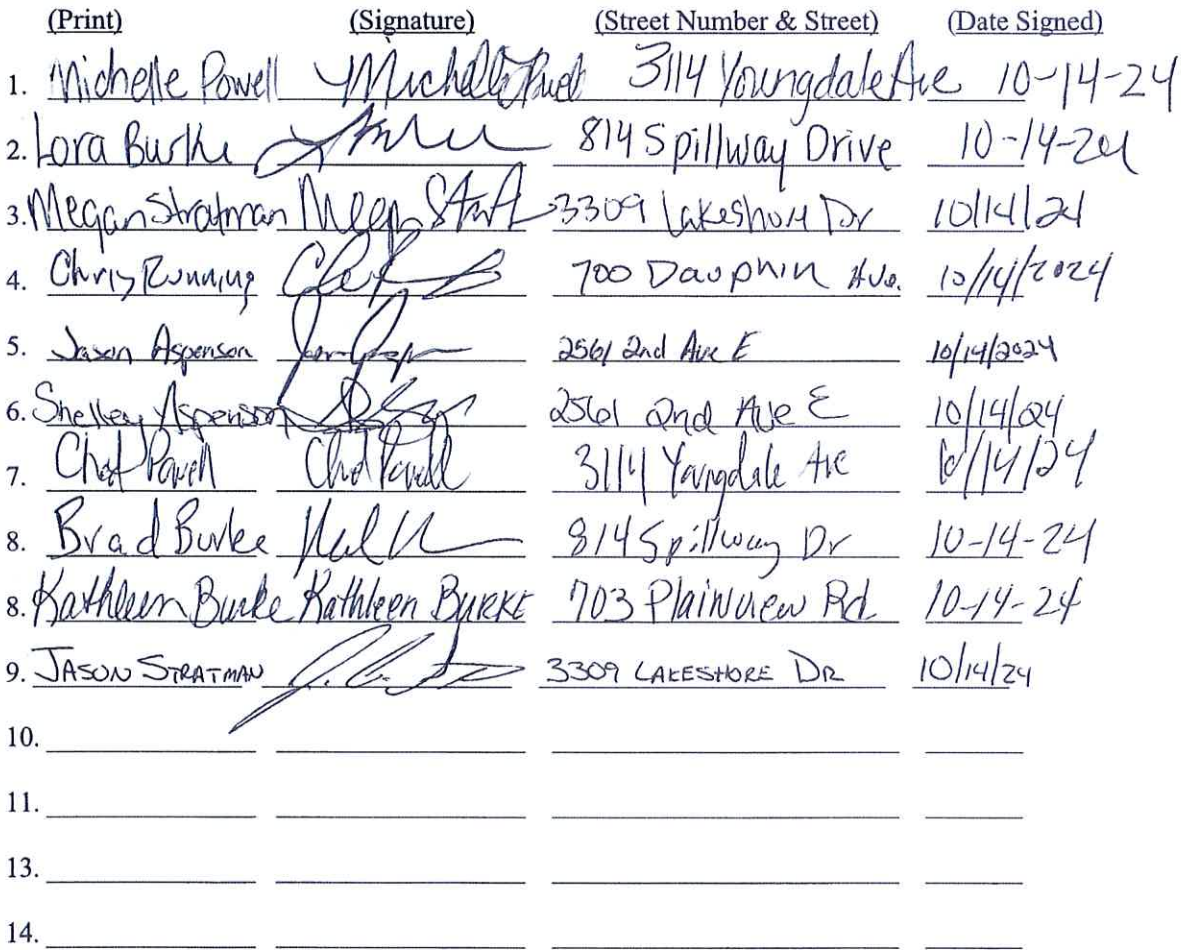 (Print) (Signature) (Street Number & Street) (Date Signed)
1. Michelle Powell Michelle Powell 3114 Youngdale Ave 10-14-24
2. Lora Burke 814 Spillway Drive 10-14-24
3. Megan Stratman Megan 3309 Lakeshore Dr 10/14/24
4. Chris Running 700 Dauphin Ave. 10/14/2024
5. Jason Aspenson 2561 2nd Ave E 10/14/2024
6. Shelley Aspenson 2561 2nd Ave E 10/14/24
7. Chet Powell Chet Powell 3114 Youngdale Ave 10/14/24
8. Brad Burke 814 Spillway Dr 10-14-24
8. Kathleen Burke Kathleen BURKE 703 Plainview Rd 10-14-24
9. JASON STRATMAN 3309 LAKESHORE DR 10/14/24
10.
11.
13.
14.